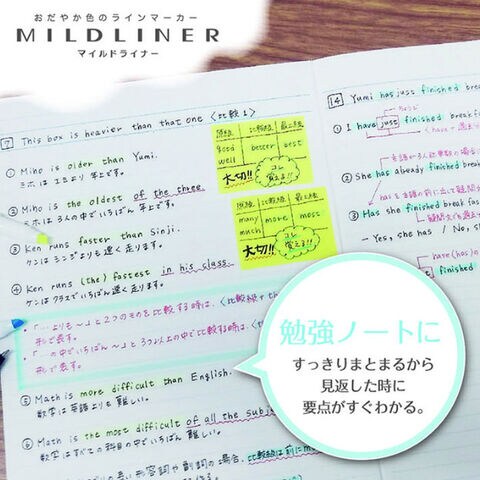 おだやか色のラインマーカー
MILDLINER
マイルドライナー
7 This box is heavier than that one 〈比較1〉
① Miho is older than Yumi.
② Miho is the oldest of the three.
ミホは3人の中でいちばん年上です。
③ Ken runs faster than Sinji.
ケンはシンジよりも速く走ります。
④ Ken runs (the) fastest in his class.
ケンはクラスでいちばん速く走ります。
・「…よりも〜」と2つのものを比較する時は、〈比較級+th
形で表す。
・「…の中でいちばん〜」と3つ以上の中で比較する時は、
形で表す。
⑤ Math is more difficult than English.
数学は英語よりも難しい。
⑥ Math is the most difficult of all the subje
数学はすべての科目の中でいちばん難しい。
形容詞や副詞の場合、比較級は前にm
原級 比較級 最上級
good
well better best
大切!! コレ覚える!!
原級 比較級 最上級
many
much more most
大切!! コレ覚える!!
14 Yumi has just finished break
① I have just finished breakf
② She has already finished break
③ Has she finished breakfast
- Yes, she has / No, s
have(has)
finished
勉強ノートに
すっきりまとまるから
見返した時に
要点がすぐわかる。